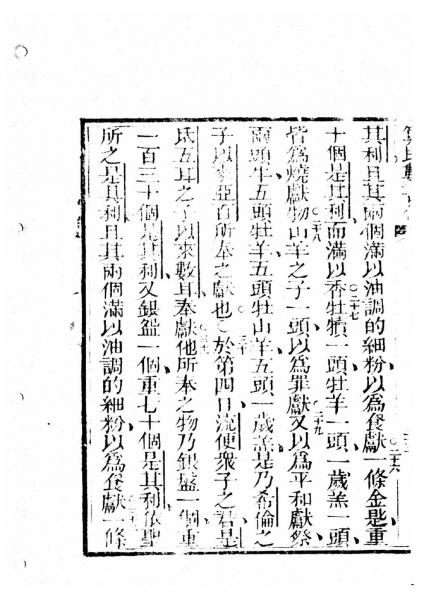 其利且其兩個滿以油調的細粉以爲餐獻○二十六一條金匙重
十個是其利而滿以香○二十七牡犢一頭牡羊一頭一歲羔一頭
皆爲燒獻物○二十八山羊之子一頭以爲罪獻○二十九又以爲平和獻祭
兩頭牛五頭牡羊五頭牡山羊五頭一歲羔是乃希倫之
子以來亞百所奉之獻也○三十於第四日流便衆子之君是
氐五耳之子以來數耳奉獻他所奉之物乃銀盤一個重
一百三十個是其利又銀盌一個重七十個是其利依聖
所之是其利且其兩個滿以油調的細粉以爲餐獻一條